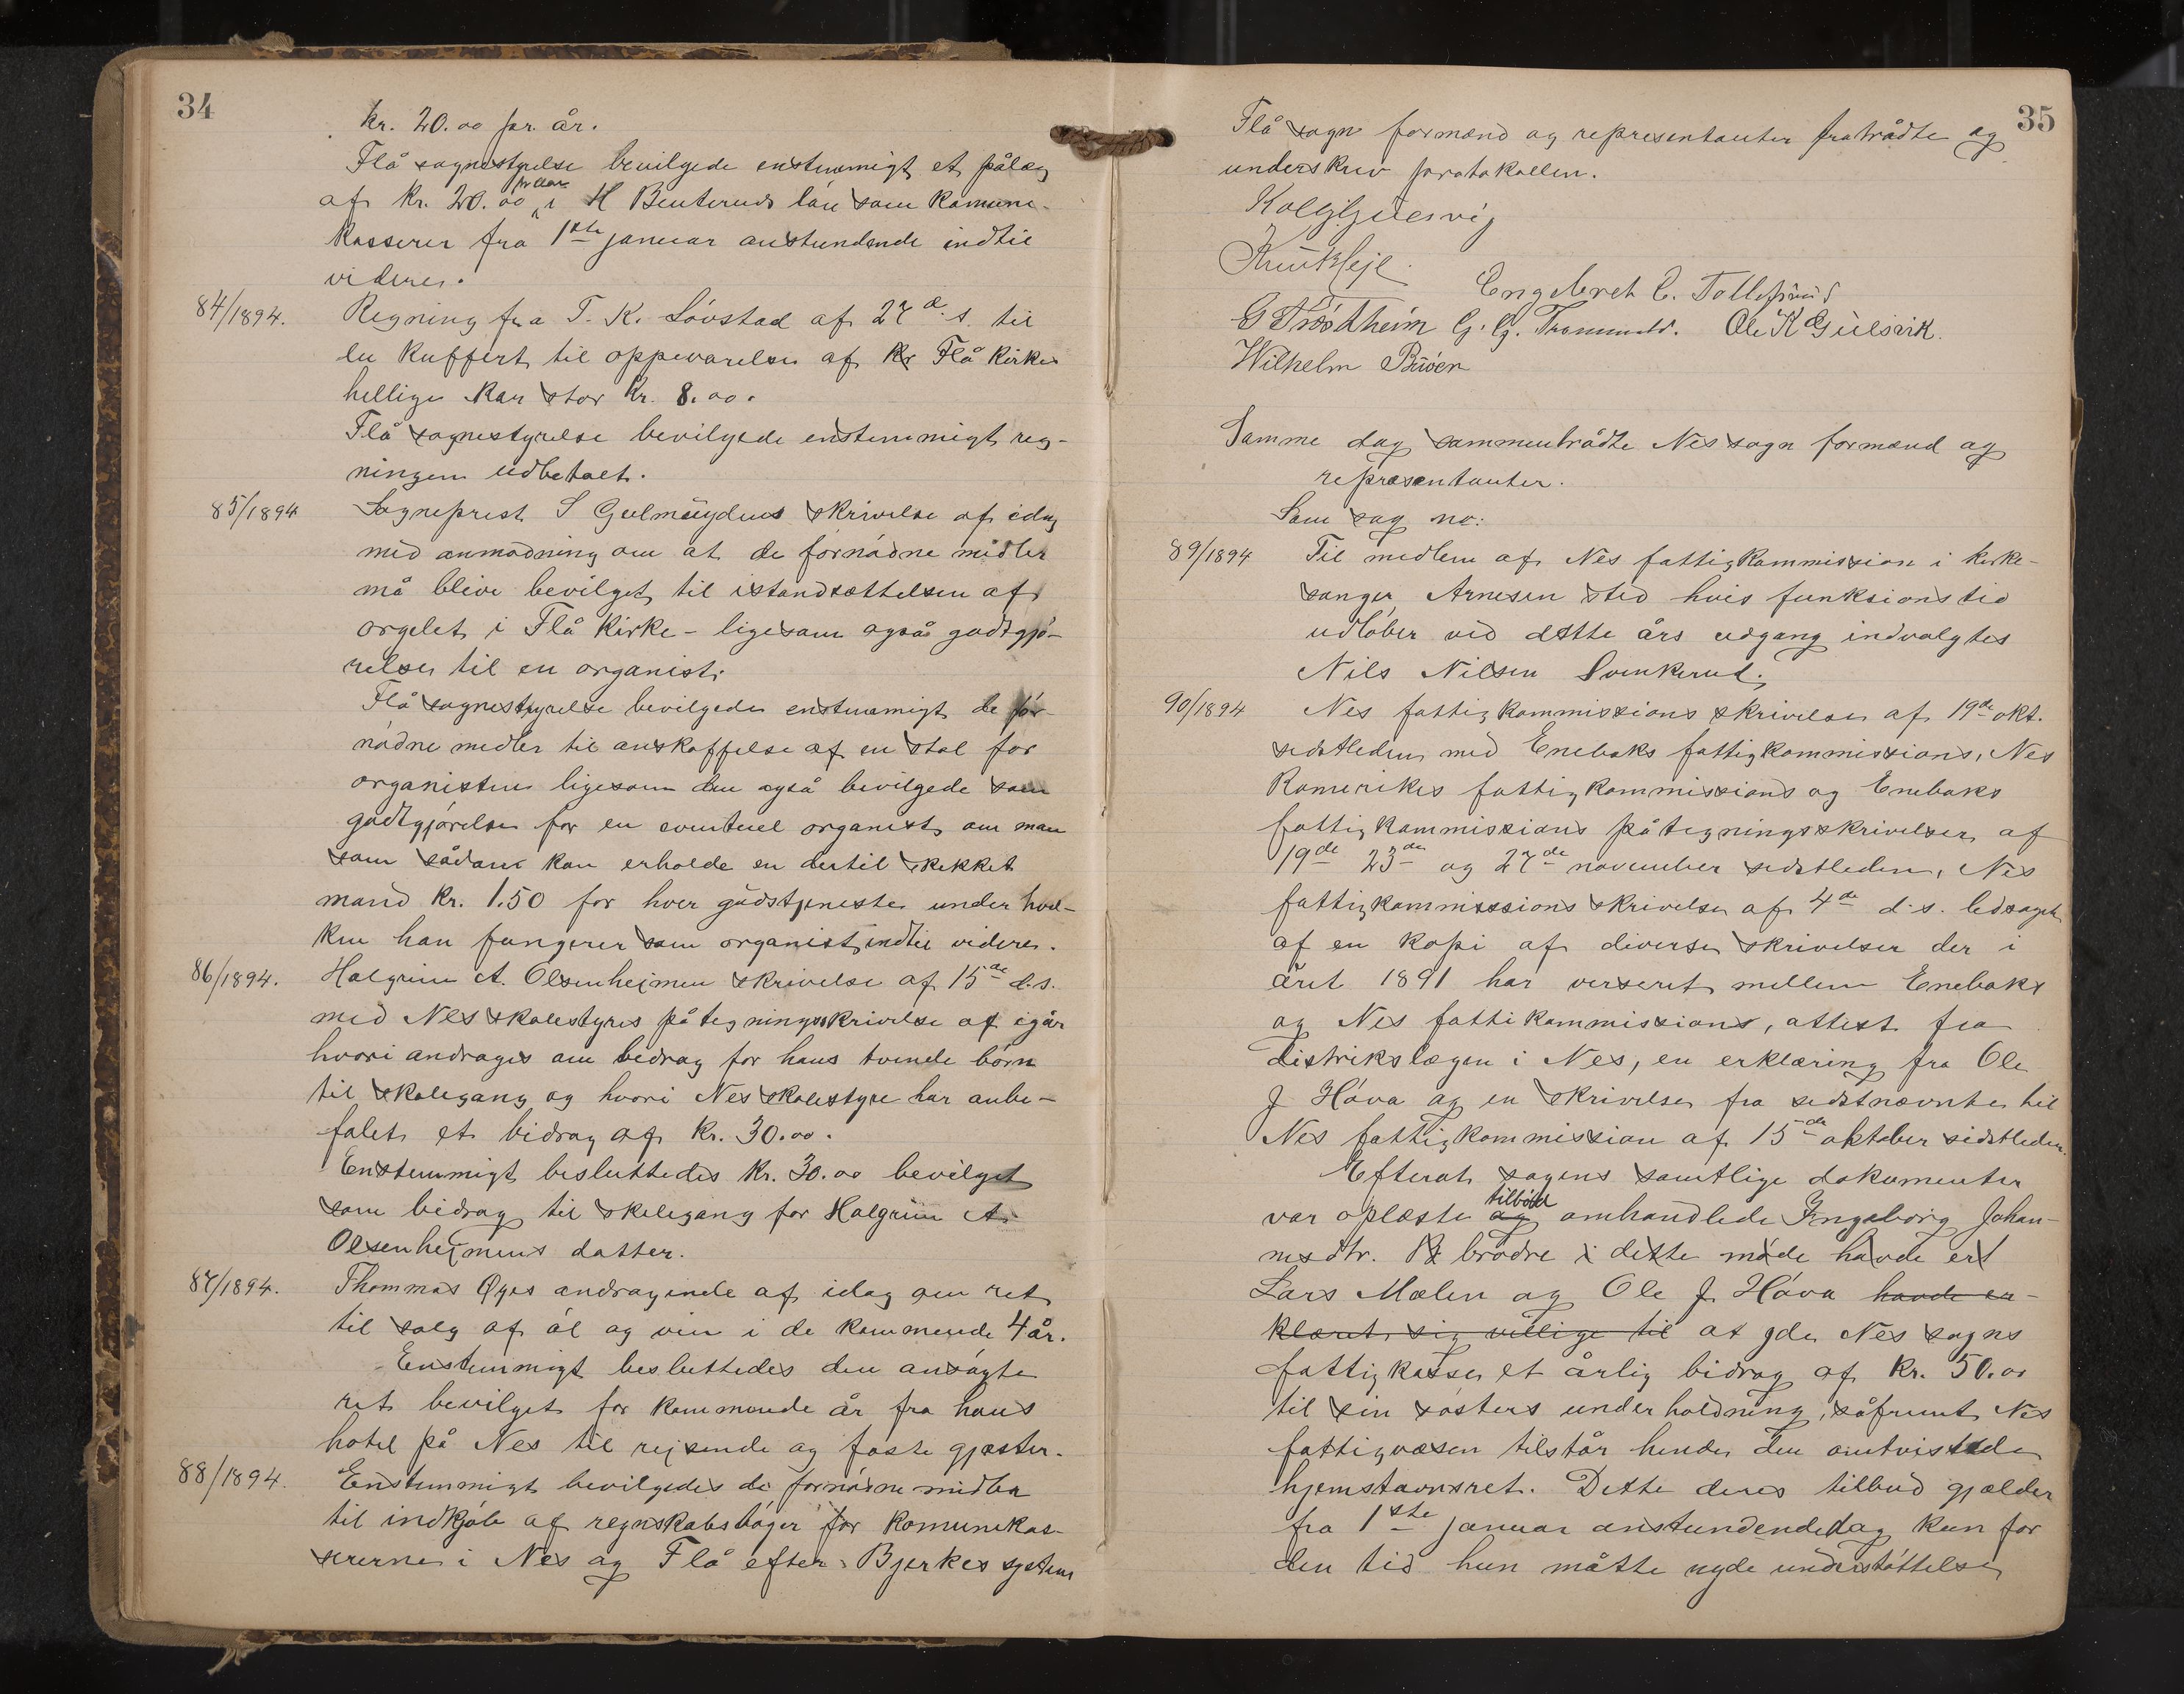 34
kr. 20.00 pr. år.
Flå sognestyrelse bevilgede enstemmigt et pålæg
af kr. 20.00 pr aar i H Benteruds lön som komune-
kasserer fra 1ste januar anstundende indtil
videre.
84/1894. Regning fra T. K. Lövstad af 27 d.s. til
en kuffert til oppevarelse af kr Flå kirkes
hellige kar stor kr. 8.00.
Flå sognestyrelse bevilgede enstemmigt reg-
ningen udbetalt.
85/1894 Sogneprest S Gulmöydens skrivelse af idag
med anmodning om at de fornödne midler
må blive bevilget til istandsættelsen af
orgelet i Flå kirke - ligesom også godtgjö-
relse til en organist.
Flå sognestyrelse bevilgede enstemmigt de for-
nödne midler til anskaffelse af en stol for
organisten ligesom den også bevilgede som
godtgjörelse for en eventuel organist, om man
som sådan kan erholde en dertil skikket
mand kr. 1.50 for hver gudstjeneste under hvil-
ken han fungerer som organist, indtil videre.
86/1894. Halgrim A. Olsenhejmen skrivelse af 15de d.s.
med Nes skolestyres påtegningsskrivelse af igår
hvori andrages om bidrag for hans tvende börn
til skolegang og hvori Nes skolestyre har anbe-
falet et bidrag af kr. 30.00.
Enstemmigt besluttedes kr. 30.00 bevilget
som bidrag til skolegang for Halgrim A.
Olsenhejmens datter.
87/1894. Thommas Öyes andragende af idag om ret
til salg af öl og vin i de kommende 4 år.
Enstemmigt besluttedes den ansögte
ret bevilget for kommende år fra hans
hotel på Nes til rejsende og faste gjæster.
88/1894. Enstemmigt bevilgedes de fornödne midler
til indkjöb af regnskabsböger for komunekas-
sererne i Nes og Flå efter Bjerkes system
35
Flå sogn formænd og representanter fratrådte og
underskrev protokollen.
K Gulsvig
Engebret C. Tollefsrud
G Trostheim G. G. Trommald. Ole K Gulsvik.
Wilhelm Büöen
Samme dag sammentrådte Nes sogn formænd og
repræsentanter.
Som sag no:
89/1894 Til medlem af Nes fattigkommission i kirke-
sanger Arnesen sted hvis funksionstid
udlöber ved dette års udgang indvalgtes
Nils Nilsen Svenkerud.
90/1894 Nes fattigkommissions skrivelse af 19de okt.
sidstleden med Enebaks fattigkommissions, Nes
Romerikes fattigkommissions og Enebaks
fattigkommissions påtegningsskrivelser af
19de 23de og 27de november sidstleden, Nes
fattigkommisssions skrivelse af 4de d.s. ledsaget
af en kopi af diverse skrivelser der i
året 1891 har verseret mellem Enebaks
og Nes fattikommissions, attest fra
distrikslægen i Nes, en erklæring fra Ole
J Höva og en skrivelse fra sidstnævnte til
Nes fattigkommission af 15de oktober sidstleden.
Efterat sagens samtlige dokumenter
var oplæste og tilböd omhandlede Ingeborg Johan-
nesdtr. brödre i dette möde havde erl
Lars Mælen og Ole J. Höva havde er-
klæret sig villige til at yde Nes sogns
fattigkasse et årlig bidrag af kr. 50.00
til sin sösters underholdning, såfremt Nes
fattigvæsen tilstår hende den omtvistede
hjemstavnsret. Dette deres tilbud gjælder
fra 1ste januar anstundende dog kun for
den tid hun måtte nyde understöttelse